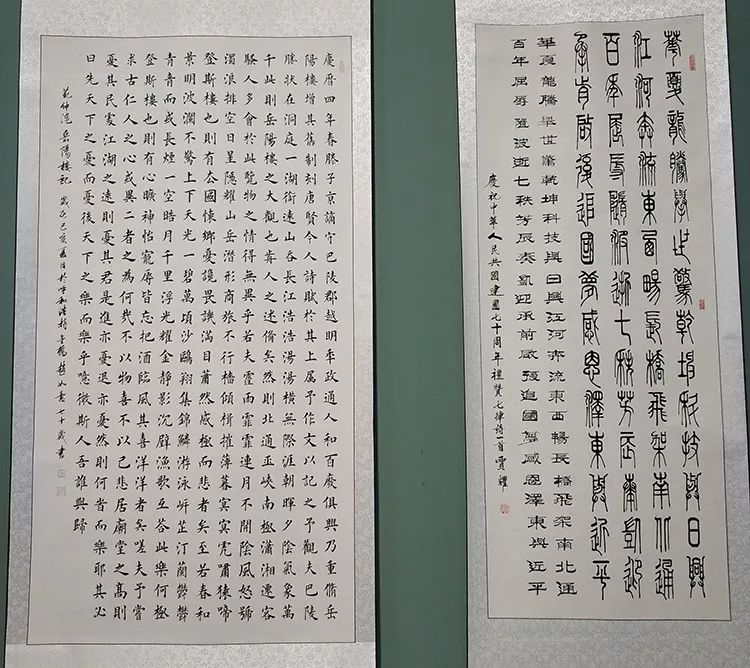 慶曆四年春滕子京謫守巴陵郡越明年政通人和百廢俱興乃重脩岳
陽樓增其舊制刻唐賢今人詩賦於其上属予作文以記之予觀夫巴陵
勝狀在洞庭一湖銜遠山吞長江浩浩湯湯橫無際涯朝暉夕陰氣象萬
千此則岳陽樓之大觀也前人之述備矣然則北通巫峽南極瀟湘遷客
騷人多會於此覽物之情得無異乎若夫霪雨霏霏連月不開陰風怒號
濁浪排空日星隱耀山岳潛形商旅不行檣傾楫摧薄暮冥冥虎嘯猿啼
登斯樓也則有去國懷鄉憂讒畏譏滿目蕭然感極而悲者矣至若春和
景明波瀾不驚上下天光一碧萬頃沙鷗翔集錦鱗游泳岸芷汀蘭鬱鬱
青青而或長煙一空皓月千里浮光耀金静影沉璧漁歌互荅此樂何極
登斯樓也則有心曠神怡寵辱皆忘把酒臨風其喜洋洋者矣嗟夫予嘗
求古仁人之心或異二者之為何哉不以物喜不以己悲居廟堂之高則
憂其民處江湖之遠則憂其君是進亦憂退亦憂然則何旹而樂耶其必
曰先天下之憂而憂後天下之樂而樂乎噫微斯人吾誰與歸
范仲淹岳陽樓記 歲在己亥 七十歲書
華夏龍騰舉世驚乾坤科技與日興
江河奔流東西暢長橋飛架南北通
百年屈辱隨波逝七秩芳辰奏凱迎
承前啟後追國夢感恩澤東與近平
華夏龍騰舉世驚乾坤科技與日興江河奔流東西暢長橋飛架南北通
百年屈辱隨波逝七秩芳辰奏凱迎承前啟後追國夢感恩澤東與近平
慶祝中華人民共國建國七十周年禮贊七律詩一首 賈耀